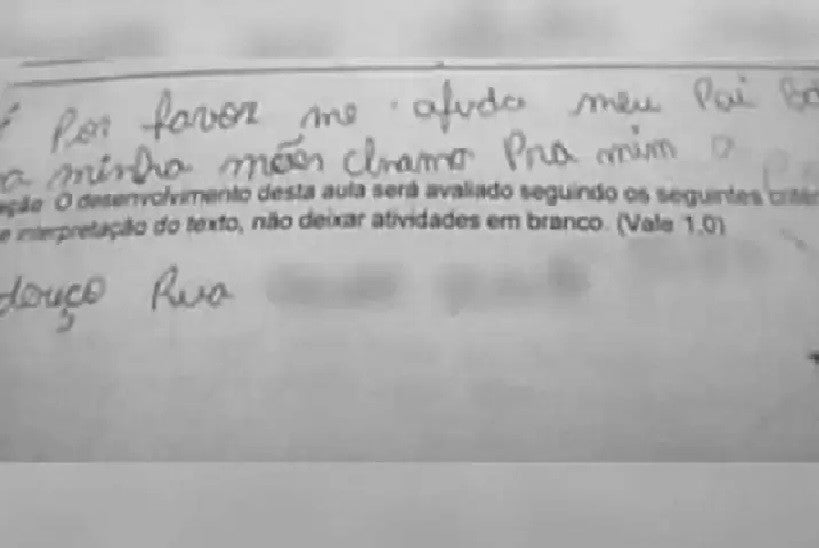 Por favor me ajuda meu Pai Ba
a minha mãen chamo Pra mim o
ação O desenvolvimento desta aula será avaliado seguindo os seguintes crité
e interpretação do texto, não deixar atividades em branco. (Vale 1,0)
douço Rua